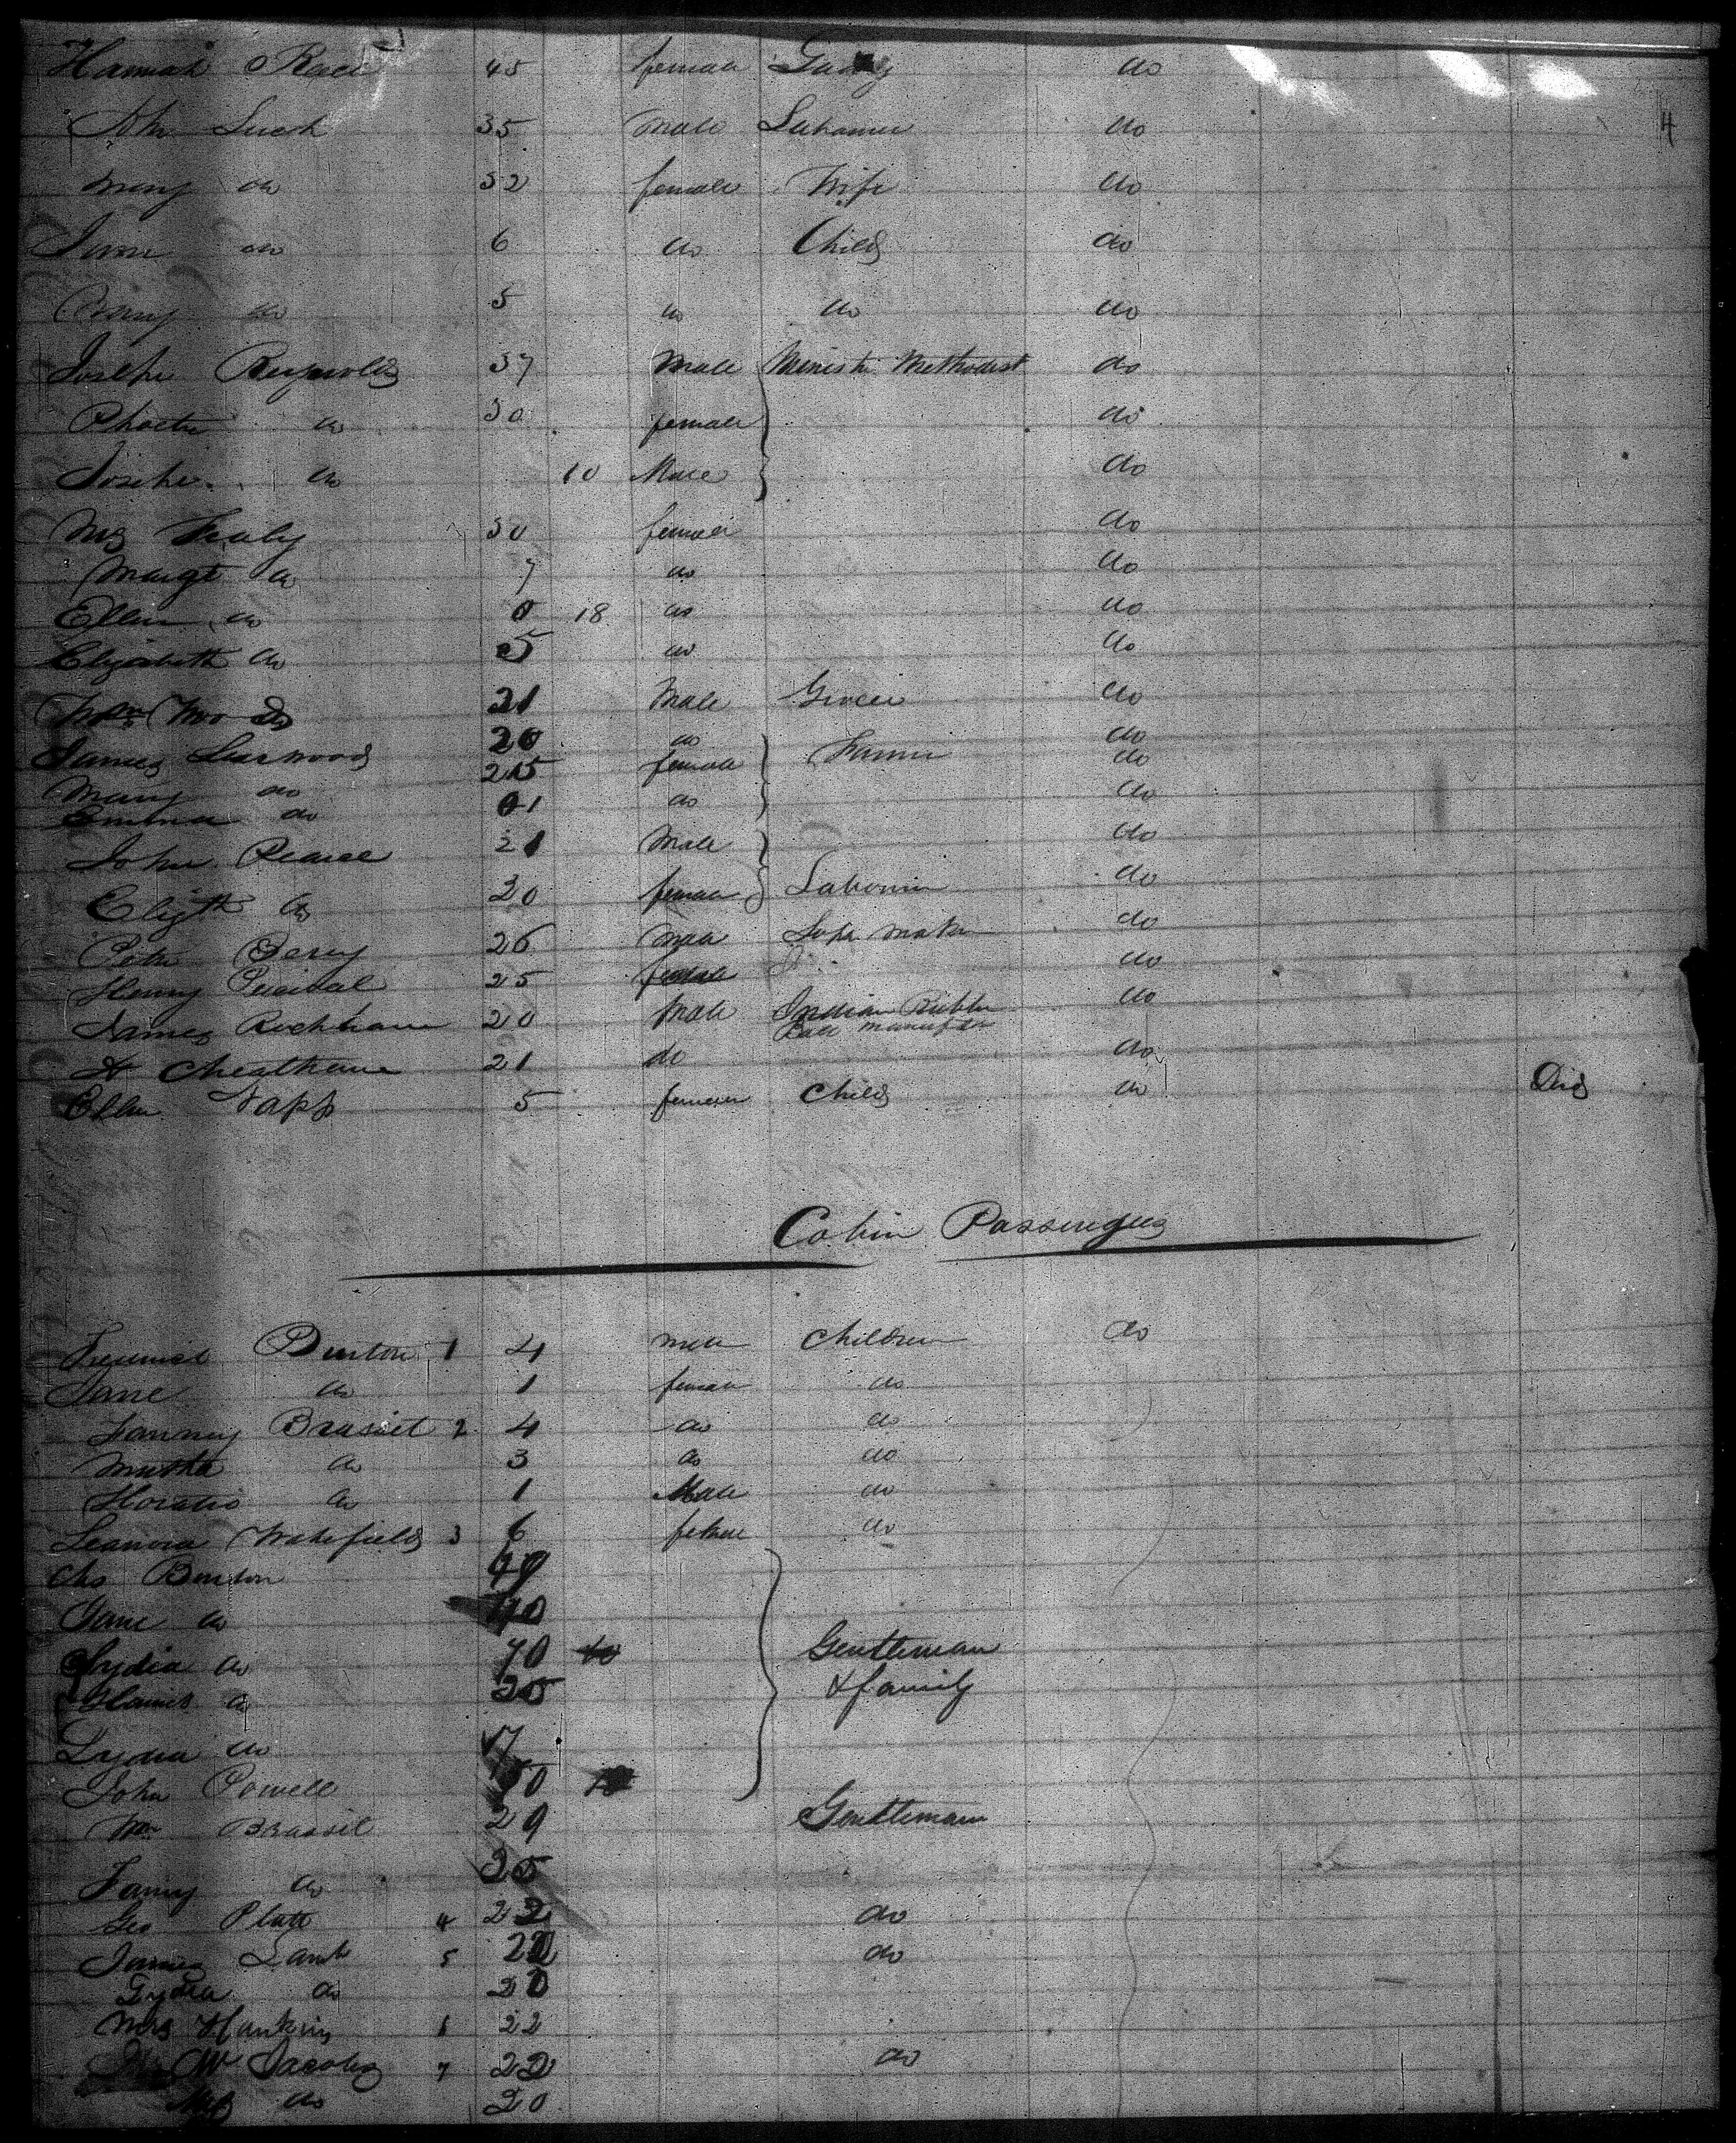 4
Hannah Race 45 female do
John Leech 35 male Labourer do
Mary do 32 female Wife do
Jane do 6 do Child do
do 5 do do do
Joseph Reynolds 37 Male Ministr Methodist do
Phoebe do 30 female do
Joseph do 10 Male do
Mrs Healy 30 female do
Margt do 7 do do
Ellen do 18 do do
Elizabeth do 5 do do
21 Male Grocer do
James 20 do Farmer do
Mary do 25 female do
Emma do 01 do do
John Pearce 21 Male do
Elizth do 20 female Labourer do
Berry 26 male Sofa maker do
Henry Percival 25 female do
James 20 Male Indian Rubber Ball do
H Cheatham 21 do do
Ellen Tapp 5 female Child do Died
Cabin Passengers
Frederick Burton 1 4 male Children do
Jane do 1 female do
Fanney Brassil 2 4 do do
Martha do 3 do do
Horatio do 1 Male do
Leanora Wakefield 3 6 female do
Chs Burton
Jane do 40
Lydia do 10 Gentleman
do 35 & family
Lydia do
John Powell
Wm Brassil 29 Gentleman
Fanny do 25
Geo Platt 4 22 do
James Lamb 5 do
Lydia do 20
Mrs Hankins 6 22
W Jacobs 7 22 do
do 20